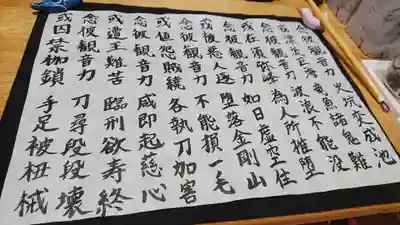 念彼観音力 火坑変成池
或漂流巨海 竜魚諸鬼難
念彼観音力 波浪不能没
或在須弥峰 為人所推堕
念彼観音力 如日虚空住
或被悪人逐 堕落金剛山
念彼観音力 不能損一毛
或値怨賊繞 各執刀加害
念彼観音力 咸即起慈心
或遭王難苦 臨刑欲寿終
念彼観音力 刀尋段段壊
或囚禁枷鎖 手足被杻械